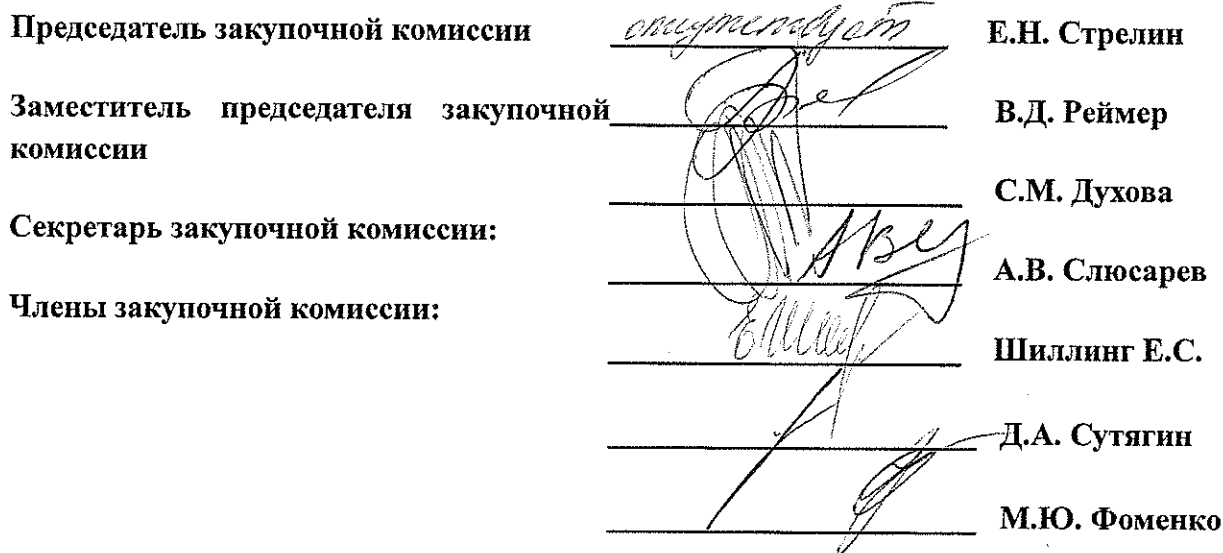 Председатель закупочной комиссии отсутствует Е.Н. Стрелин
Заместитель председателя закупочной В.Д. Реймер
комиссии
С.М. Духова
Секретарь закупочной комиссии:
А.В. Слюсарев
Члены закупочной комиссии:
Шиллинг Е.С.
Д.А. Сутягин
М.Ю. Фоменко